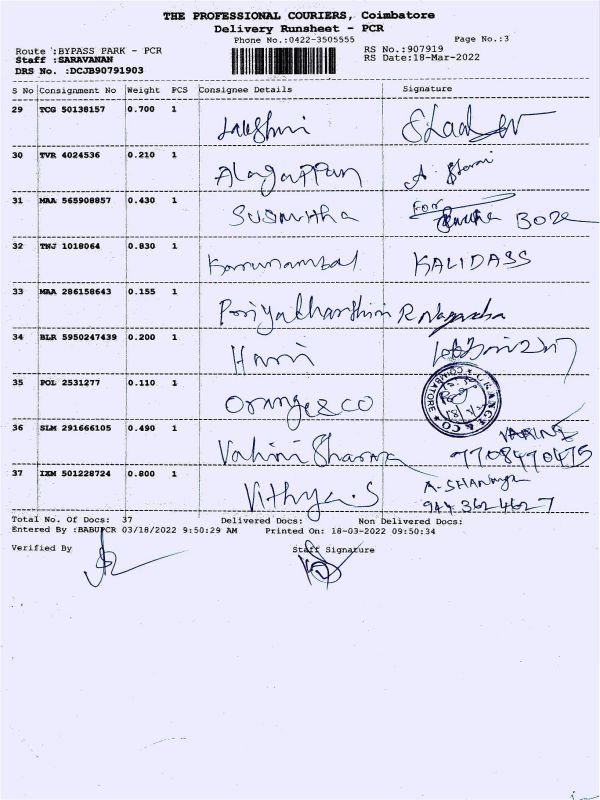 THE PROFESSIONAL COURIERS, Coimbatore
Delivery Runsheet - PCR
Phone No.:0422-3505555 Page No.:3
Route :BYPASS PARK - PCR RS No.:907919
Staff :SARAVANAN RS Date:18-Mar-2022
DRS No. :DCJB90791903
S No Consignment No Weight PCS Consignee Details Signature
29 TCG 50138157 0.700 1 Lakshmi
30 TVR 4024536 0.210 1 Alagappan
31 MAA 565908857 0.430 1 Susmitha For BOZE
32 TMJ 1018064 0.830 1 Karunambal KALIDASS
33 MAA 286158643 0.155 1 Priyadharshini
34 BLR 5950247439 0.200 1 Hari
35 POL 2531277 0.110 1 Orange & co
ORANGE & CO
COIMBATORE
36 SLM 291666105 0.490 1 Vahini Sharma
7708470475
37 IXM 501228724 0.800 1 Vithya.S
Total No. Of Docs: 37 Delivered Docs: Non Delivered Docs:
Entered By :BABUPCR 03/18/2022 9:50:29 AM Printed On: 18-03-2022 09:50:34
Verified By Staff Signature